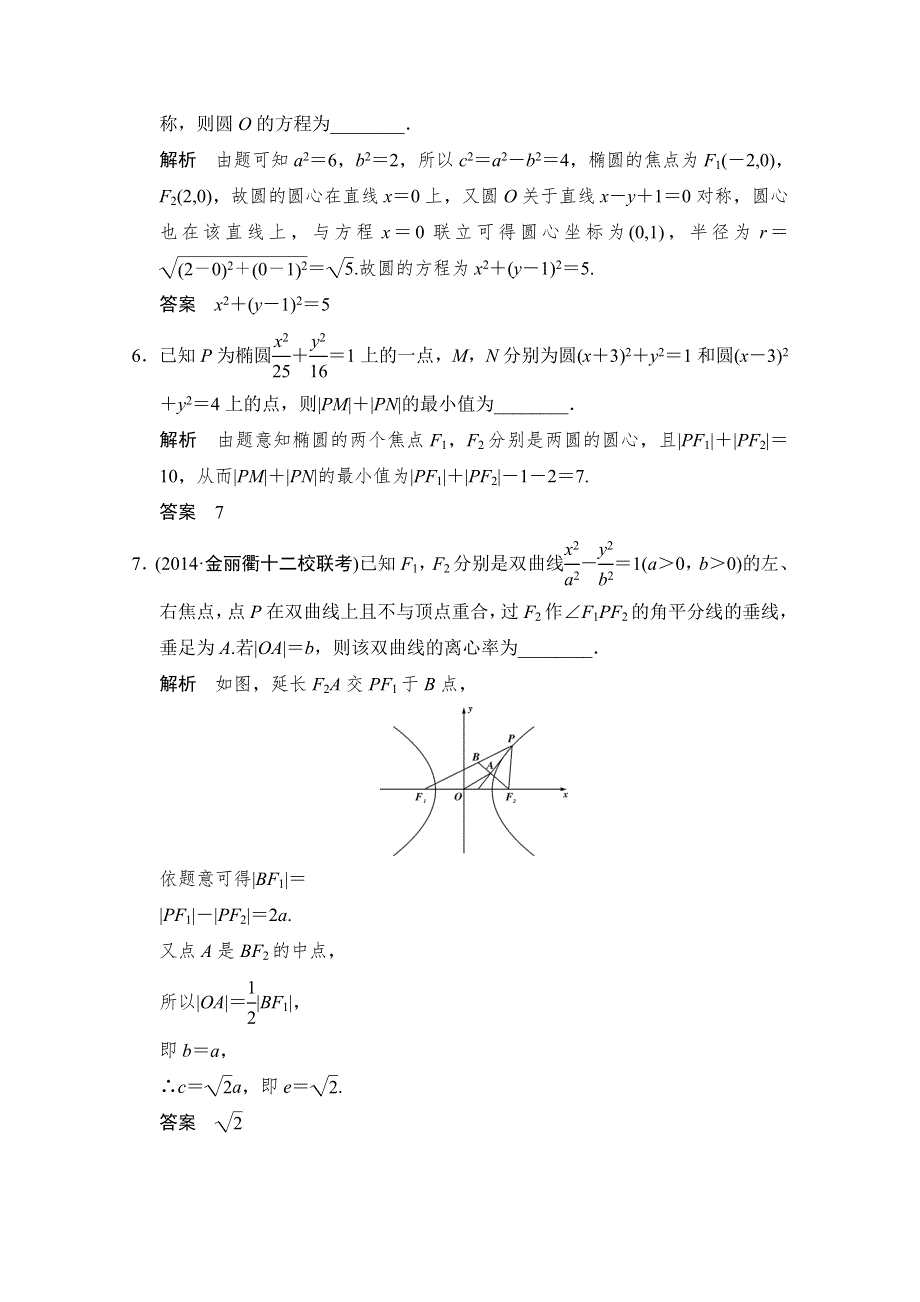 称，则圆 O 的方程为________．
解析　由题可知 a²＝6，b²＝2，所以 c²＝a²－b²＝4，椭圆的焦点为 F₁(－2,0)，
F₂(2,0)，故圆的圆心在直线 x＝0 上，又圆 O 关于直线 x－y＋1＝0 对称，圆心
也在该直线上，与方程 x＝0 联立可得圆心坐标为(0,1)，半径为 r＝
√((2－0)²＋(0－1)²)＝√5.故圆的方程为 x²＋(y－1)²＝5.
答案　x²＋(y－1)²＝5
6．已知 P 为椭圆x²/25＋y²/16＝1 上的一点，M，N 分别为圆(x＋3)²＋y²＝1 和圆(x－3)²
＋y²＝4 上的点，则|PM|＋|PN|的最小值为________．
解析　由题意知椭圆的两个焦点 F₁，F₂分别是两圆的圆心，且|PF₁|＋|PF₂|＝
10，从而|PM|＋|PN|的最小值为|PF₁|＋|PF₂|－1－2＝7.
答案　7
7．(2014·金丽衢十二校联考)已知 F₁，F₂分别是双曲线x²/a²－y²/b²＝1(a＞0，b＞0)的左、
右焦点，点 P 在双曲线上且不与顶点重合，过 F₂作∠F₁PF₂的角平分线的垂线，
垂足为 A.若|OA|＝b，则该双曲线的离心率为________．
解析　如图，延长 F₂A 交 PF₁于 B 点，
y
P
B
A
F₁ O F₂ x
依题意可得|BF₁|＝
|PF₁|－|PF₂|＝2a.
又点 A 是 BF₂的中点，
所以|OA|＝1/2|BF₁|，
即 b＝a，
∴c＝√2a，即 e＝√2.
答案　√2